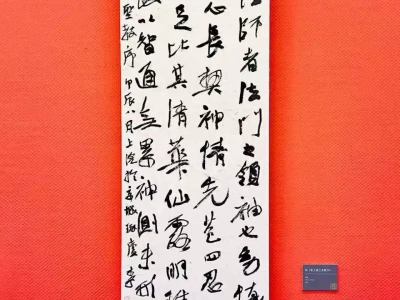 法師者法門之領袖也幼懷
心長契神情先苞四忍
足比其清華仙露明珠
以智通無累神測未形
聖教序 甲辰八月上浣於